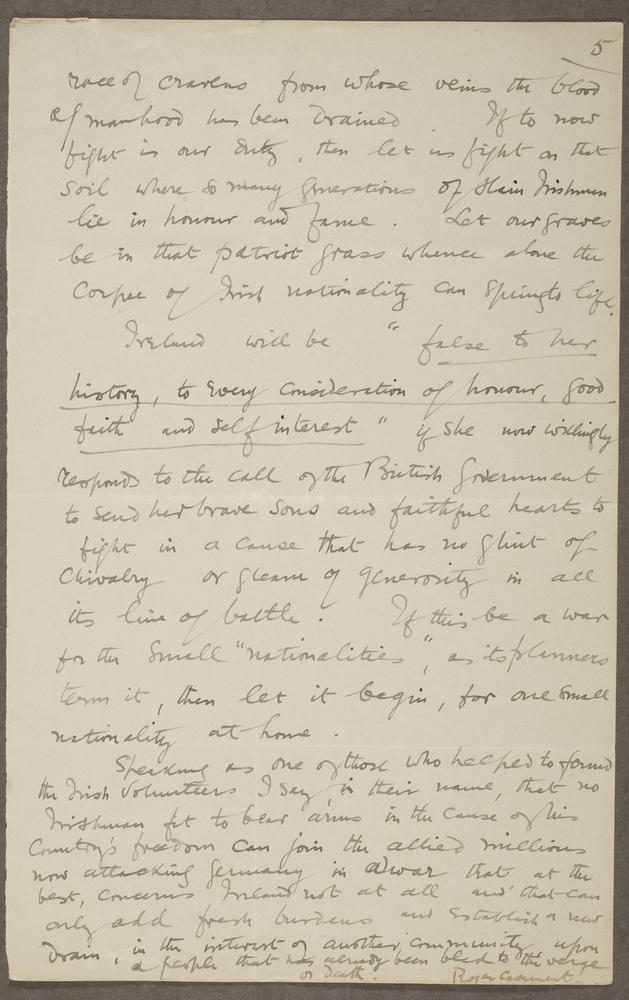 5
race of cravens from whose veins the blood
of manhood has been drained. If to now
fight is our duty, then let us fight on that
soil where so many generations of slain Irishmen
lie in honour and fame. Let our graves
be in that patriot grass whence alone the
corpse of Irish nationality can spring to life.
Ireland will be "false to her
history, to every consideration of honour, good
faith and self interest" if she now willingly
responds to the call of the British Government
to send her brave sons and faithful hearts to
fight in a cause that has no glint of
chivalry or gleam of generosity in all
its line of battle. If this be a war
for the small "nationalities", as its planners
term it, then let it begin, for one small
nationality at home.
Speaking as one of those who helped to found
the Irish Volunteers I say, in their name, that no
Irishman fit to bear arms in the cause of his
Country's freedom can join the allied millions
now attacking Germany in a war that at the
best, concerns Ireland not at all and that can
only add fresh burdens and establish a new
drain, in the interest of another community, upon
a people that has already been bled to the verge
of death.
Roger Casement.